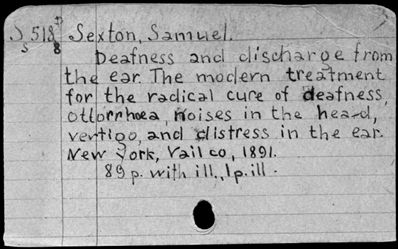 S 518 D
S 8
Sexton, Samuel.
Deafness and discharge from
the ear. The modern treatment
for the radical cure of deafness,
otorrhoea, noises in the head,
vertigo, and distress in the ear.
New York, Vail co, 1891.
89 p. with ill., 1 p. ill.